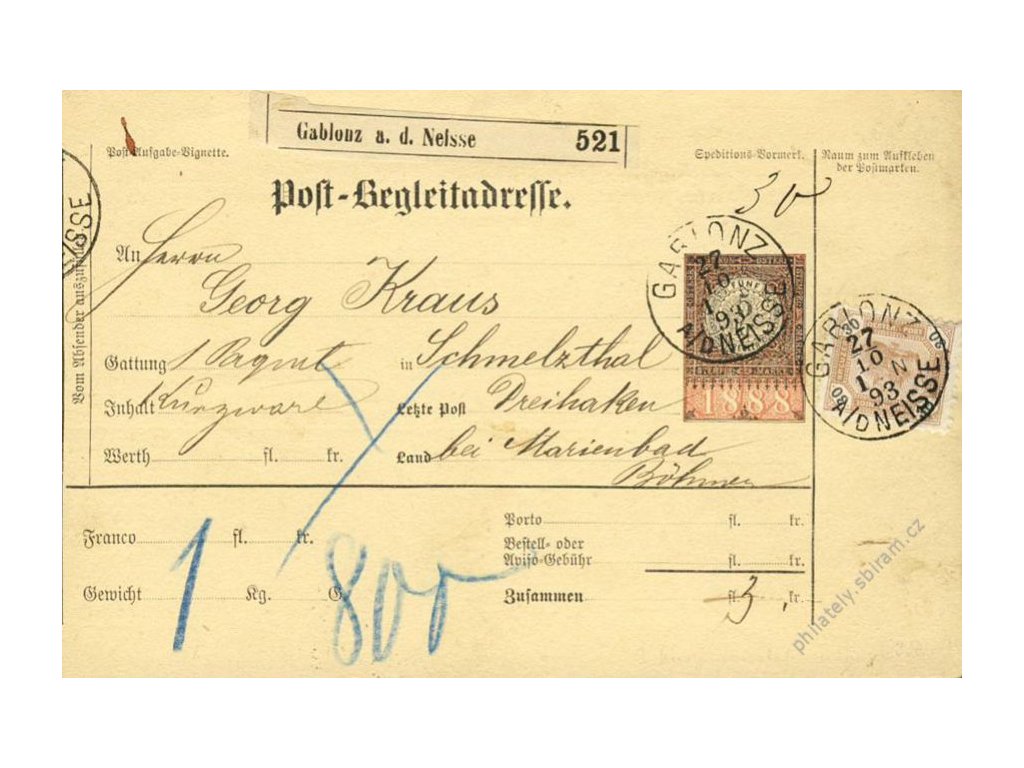 Gablonz a. d. Neisse 521
Post-Aufgabe-Vignette.
Speditions-Vormerk.
Raum zum Aufkleben
der Postmarken.
Post-Begleitadresse.
30
Vom Absender auszufüllen
An Herrn
Georg Kraus
Gattung 1 Paquet in Schmelzthal
Inhalt Kurzware Letzte Post Dreihaken
Werth fl. kr. Land bei Marienbad
Böhmen
GABLONZ
27
10
93
A/D NEISSE
1888
GABLONZ
27
10
1 N
93
A/D NEISSE
ISSE
Franco fl. kr.
Porto fl. kr.
Bestell- oder
Aviso-Gebühr
Gewicht 1 Kg. 800 G
Zusammen fl. 3 kr.
philately.sbiram.cz